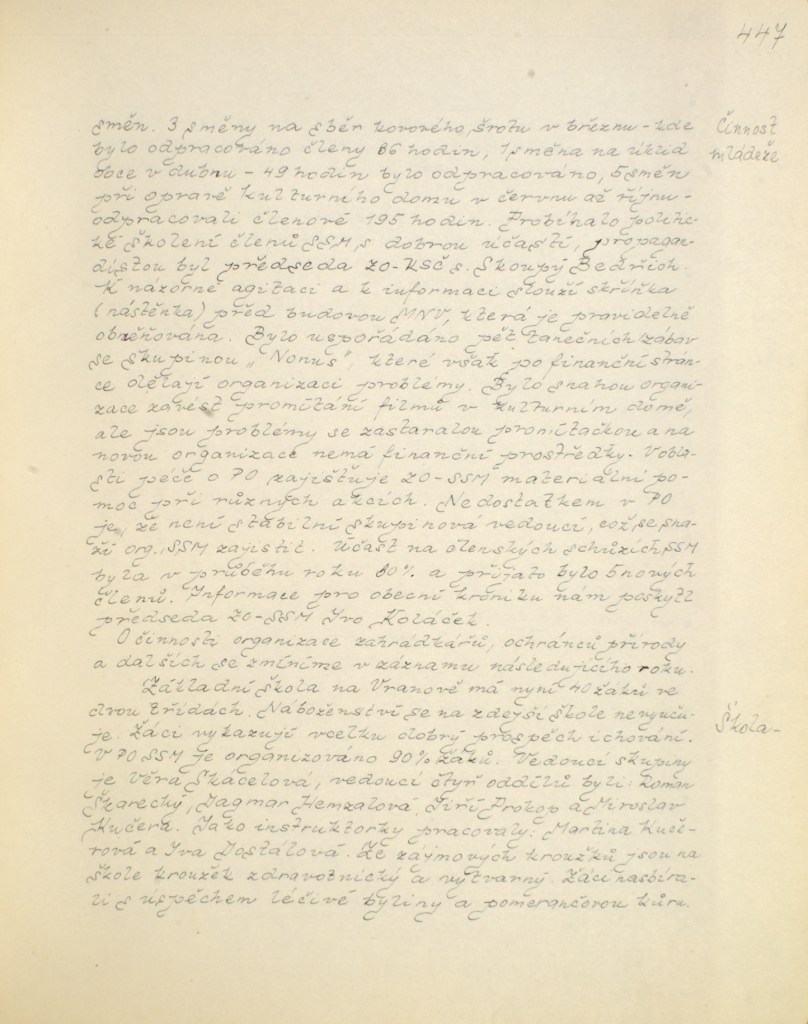 447
směn. 3 směny na sběr kovového šrotu v březnu - kde
bylo odpracováno členy 86 hodin, 1 směna na úklid
obce v dubnu - 49 hodin bylo odpracováno, 5 směn
při opravě kulturního domu v červnu až říjnu -
odpracovali členové 195 hodin. Probíhalo politic-
ké školení členů SSM, s dobrou účastí, propagan-
distou byl předseda ZO-KSČ s. Skoupý Bedřich.
K názorné agitaci a k informaci slouží skříňka
(nástěnka) před budovou MNV, která je pravidelně
obměňována. Bylo uspořádáno pět tanečních zábav
se skupinou „Nonus", které však po finanční strán-
ce dělají organizaci problémy. Bylo snahou organi-
zace zavést promítání filmů v kulturním domě,
ale jsou problémy se zastaralou promítačkou a na
novou organizace nemá finanční prostředky. V obla-
sti péče o PO zajišťuje ZO-SSM materiální po-
moc při různých akcích. Nedostatkem v PO
je, že není stabilní skupinová vedoucí, což se sna-
ží org. SSM zajistit. Účast na členských schůzích SSM
byla v průběhu roku 80% a přijato bylo 5 nových
členů. Informace pro obecní kroniku nám poskytl
předseda ZO-SSM Ivo Koláček.
O činnosti organizace zahrádkářů, ochránců přírody
a dalších se zmíníme v záznamu následujícího roku.
Základní škola na Vranově má nyní 40 žáků ve
dvou třídách. Náboženství se na zdejší škole nevyuču-
je. Žáci vykazují vcelku dobrý prospěch i chování.
V PO SSM je organizováno 90% žáků. Vedoucí skupiny
je Věra Skácelová, vedoucí čtyř oddílů byli: Roman
Škarecký, Dagmar Hemzalová, Jiří Prokop a Miroslav
Kučera. Jako instruktorky pracovaly: Martina Kuče-
rová a Iva Dostálová. Ze zájmových kroužků jsou na
škole kroužek zdravotnický a výtvarný. Žáci nasbíra-
li s úspěchem léčivé byliny a pomerančovou kůru.
Činnost
mládeže
Škola -